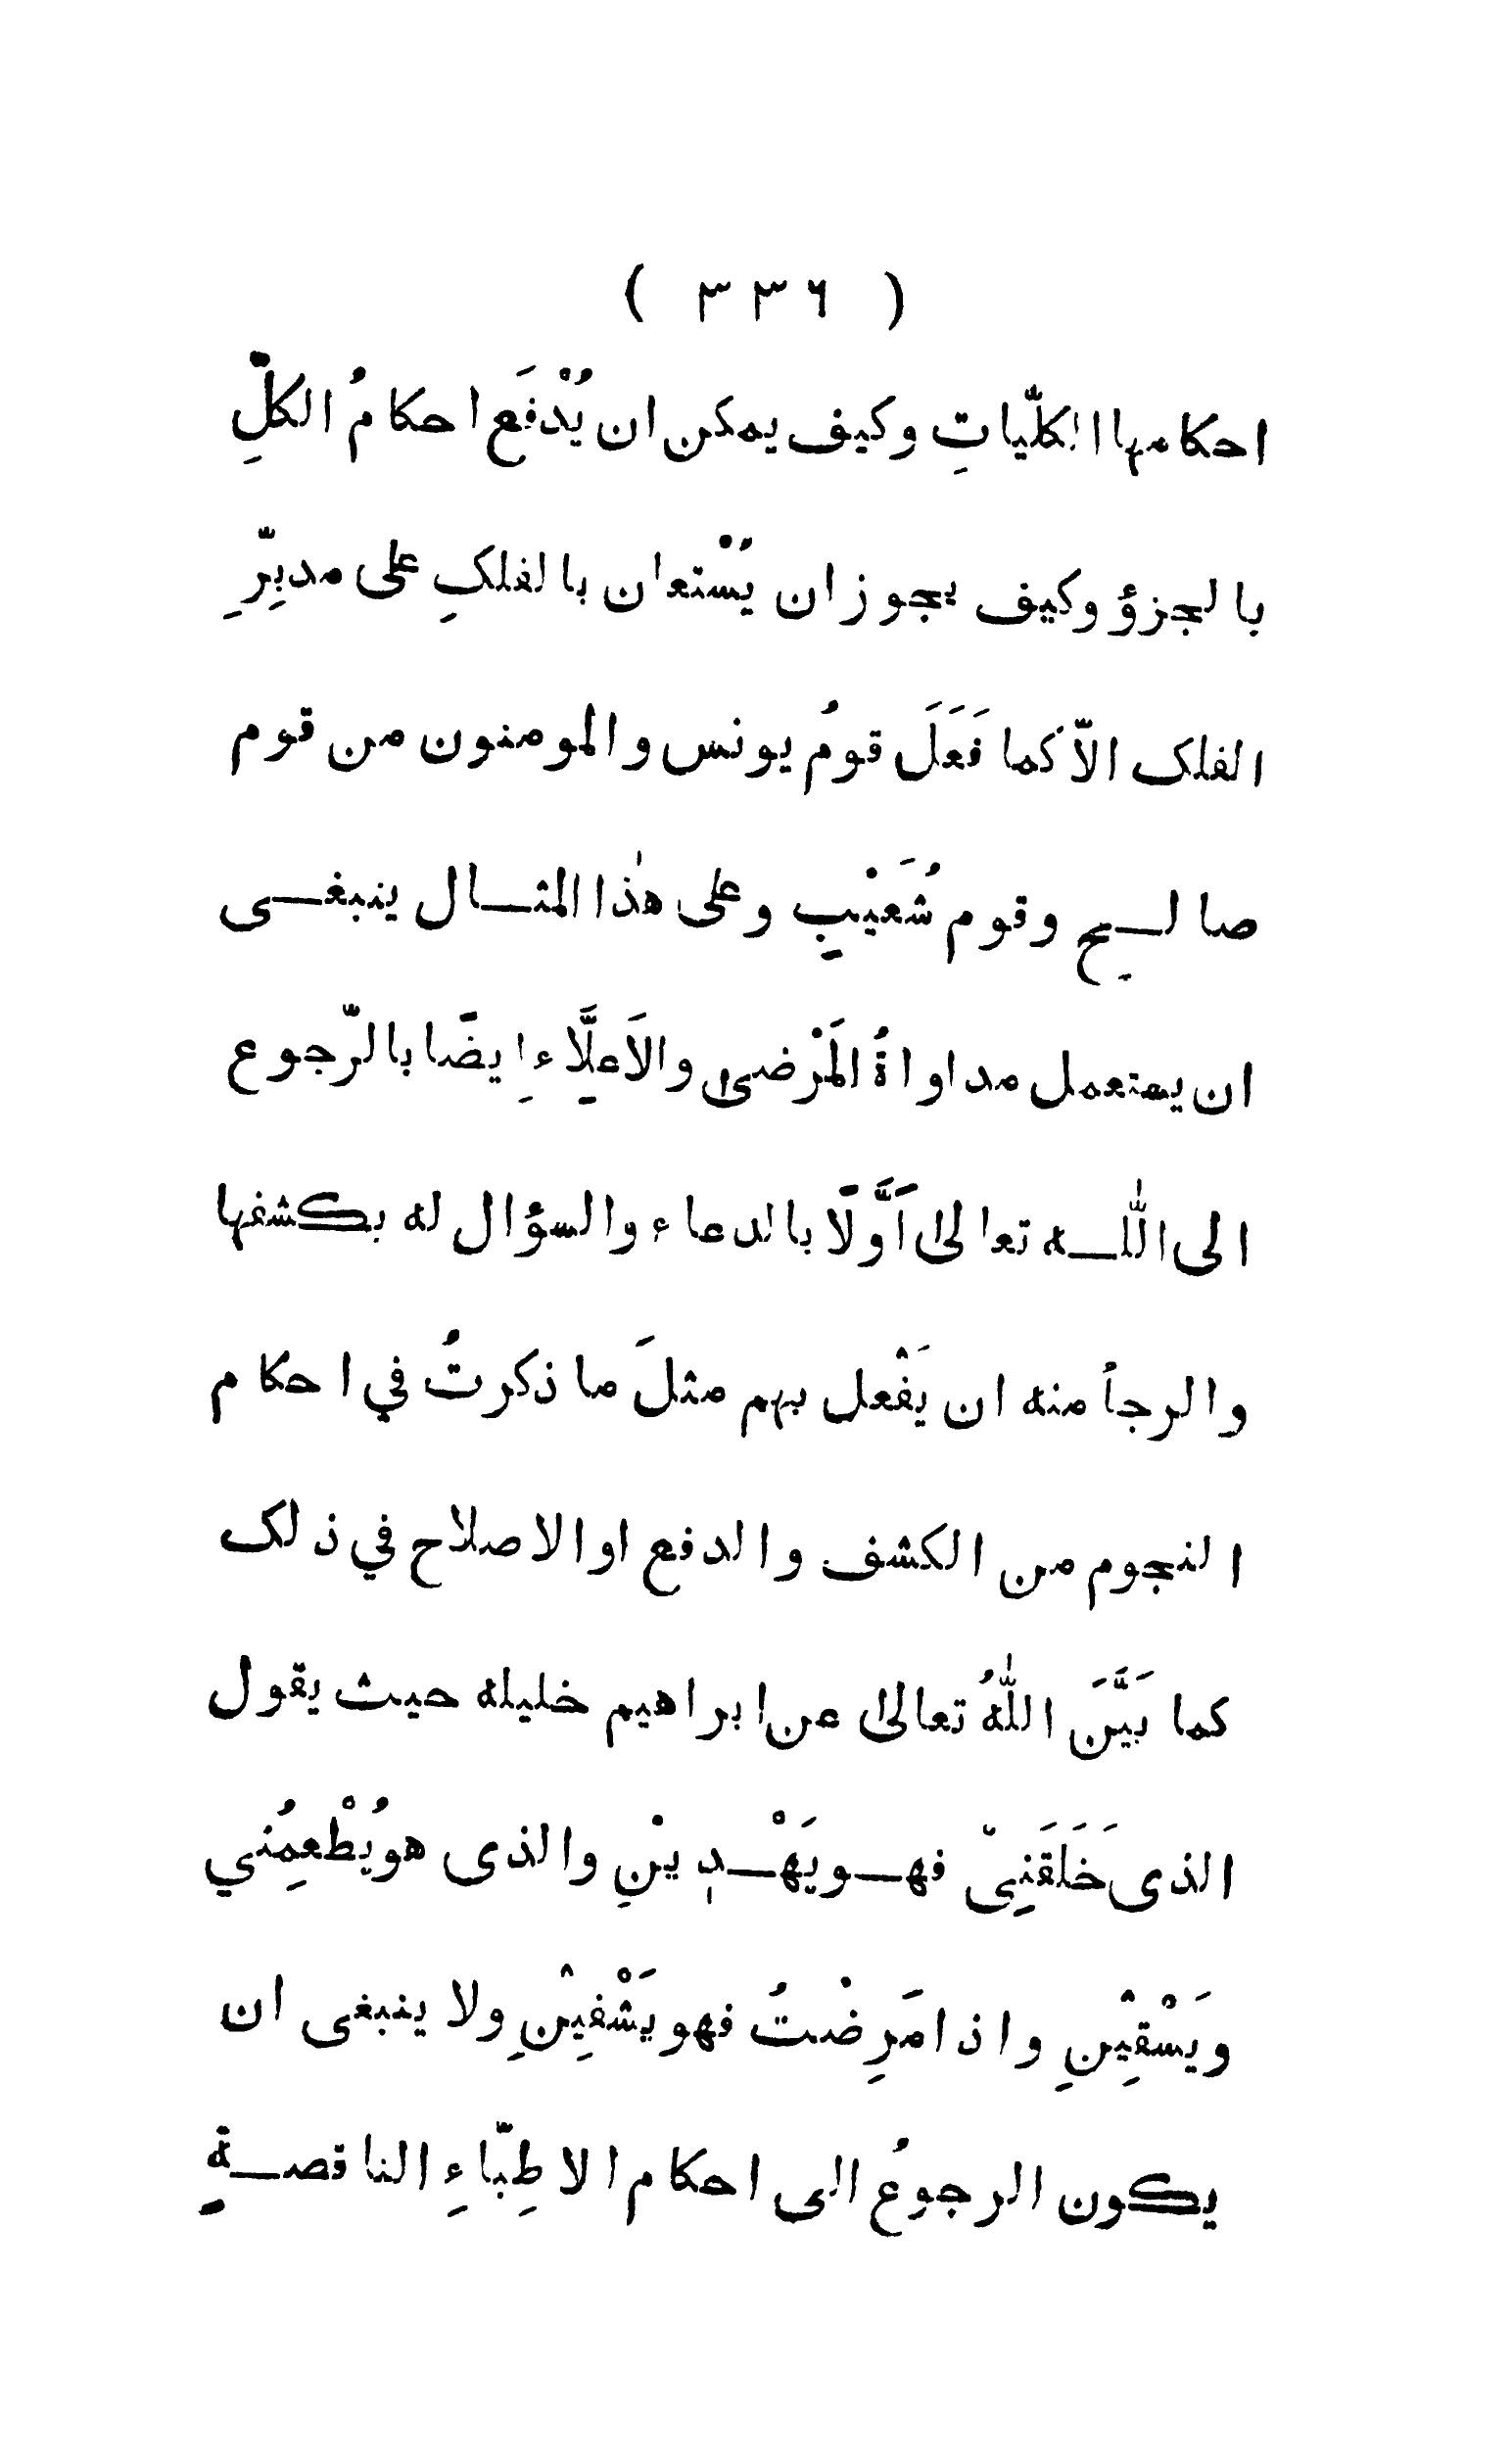 ( ٣٣٦ )
احكامها الكلّياتِ وكيف يمكن ان يُدْفَع احكامُ الكلِّ
بالجزؤ وكيف يجوز ان يُسْتعان بالفلکِ على مدبِرِّ
الفلک الاّ كما فَعَلَ قومُ يونس والمومنون من قوم
صالــحٍ وقوم شُعَيْبٍ وعلى هٰذا المثــال ينبغــى
ان يستعمل مداواةُ المَرْضىٰ والاَعِلَّاءِ ايضًا بالرّجوع
الى اللّٰــه تعالىٰ اَوَّلًا بالدعاء والسؤال له بكشفها
والرجأ منه ان يَفْعل بهم مثلَ ما ذكرتُ في احكام
النجوم من الكشف والدفع او الاصلاح في ذلک
كما بَيَّنَ اللّٰهُ تعالىٰ عن ابراهيم خليله حيث يقول
الذى خَلَقَنِىْ فهــو يَهْــدِيْنِ والذى هو يُطْعِمُني
ويَسْقِيْنِ واذا مَرِضْتُ فهو يَشْفِيْنِ ولا ينبغى ان
يكون الرجوعُ الى احكام الاطِبّاءِ الناقصــةِ